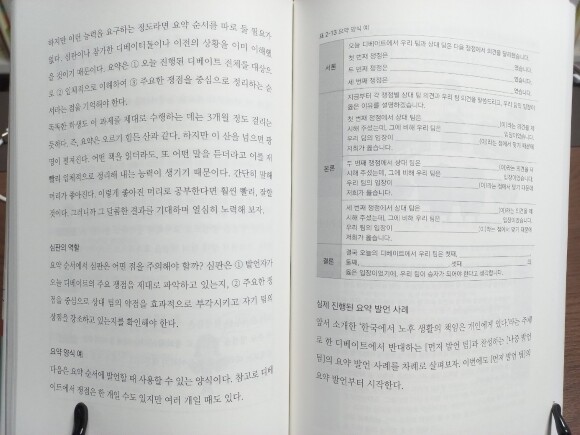 하지만 이런 능력을 요구하는 정도라면 요약 순서를 따로 둘 필요가
없다. 심판이나 참가한 디베이터들이나 이전의 상황을 이미 이해했
을 것이기 때문이다. 요약은 ① 오늘 진행된 디베이트 전체를 대상으
로 ② 입체적으로 이해하여 ③ 주요한 쟁점을 중심으로 정리하는 순
서라는 점을 기억해야 한다.
똑똑한 학생도 이 과제를 제대로 수행하는 데는 3개월 정도 걸리는
듯하다. 즉, 요약은 오르기 힘든 산과 같다. 하지만 이 산을 넘으면 광
명이 펼쳐진다. 어떤 책을 읽더라도, 또 어떤 말을 듣더라도 이를 재
빨리 입체적으로 정리해 내는 능력이 생기기 때문이다. 간단히 말해
머리가 좋아진다. 이렇게 좋아진 머리로 공부한다면 훨씬 빨리, 잘할
것이다. 그러니까 그 달콤한 결과를 기대하며 열심히 노력해 보자.
심판의 역할
요약 순서에서 심판은 어떤 점을 주의해야 할까? 심판은 ① 발언자가
오늘 디베이트의 주요 쟁점을 제대로 파악하고 있는지, ② 주요한 쟁
점을 중심으로 상대 팀의 약점을 효과적으로 부각시키고 자기 팀의
장점을 강조하고 있는지를 확인해야 한다.
요약 양식 예
다음은 요약 순서에 발언할 때 사용할 수 있는 양식이다. 참고로 디베
이트에서 쟁점은 한 개일 수도 있지만 여러 개일 때도 있다.
표 2-13 요약 양식 예
서론
오늘 디베이트에서 우리 팀과 상대 팀은 다음 쟁점에서 의견을 달리했습니다.
첫 번째 쟁점은 였습니다.
두 번째 쟁점은 였습니다.
세 번째 쟁점은 였습니다.
본론
지금부터 각 쟁점별로 상대 팀 의견과 우리 팀 의견을 말씀드리고, 우리 팀의 입장이
옳은 이유를 설명하겠습니다.
첫 번째 쟁점에서 상대 팀은 (이)라는 의견을 제
시해 주셨는데, 그에 비해 우리 팀은 입장이었습니다.
우리 팀의 입장이 (이)라는 점에서 맞기 때문에
저희가 옳습니다.
두 번째 쟁점에서 상대 팀은 (이)라는 의견을 제
시해 주셨는데, 그에 비해 우리 팀은 입장이었습니다.
우리 팀의 입장이 (이)라는 점에서 맞기 때문에
저희가 옳습니다.
세 번째 쟁점에서 상대 팀은 (이)라는 의견을 제
시해 주셨는데, 그에 비해 우리 팀은 입장이었습니다.
우리 팀의 입장이 (이)라는 점에서 맞기 때문에
저희가 옳습니다.
결론
결국 오늘의 디베이트에서 우리 팀은 첫째,
둘째, 셋째 의
옳은 입장이었기에, 우리 팀이 승자가 되어야 한다고 생각합니다.
실제 진행된 요약 발언 사례
앞서 소개한 '한국에서 노후 생활의 책임은 개인에게 있다.'라는 주제
로 한 디베이트에서 반대하는 [먼저 발언 팀]과 찬성하는 [나중 발언
팀]의 요약 발언 사례를 차례로 살펴보자. 이번에도 [먼저 발언 팀]의
요약 발언부터 시작한다.